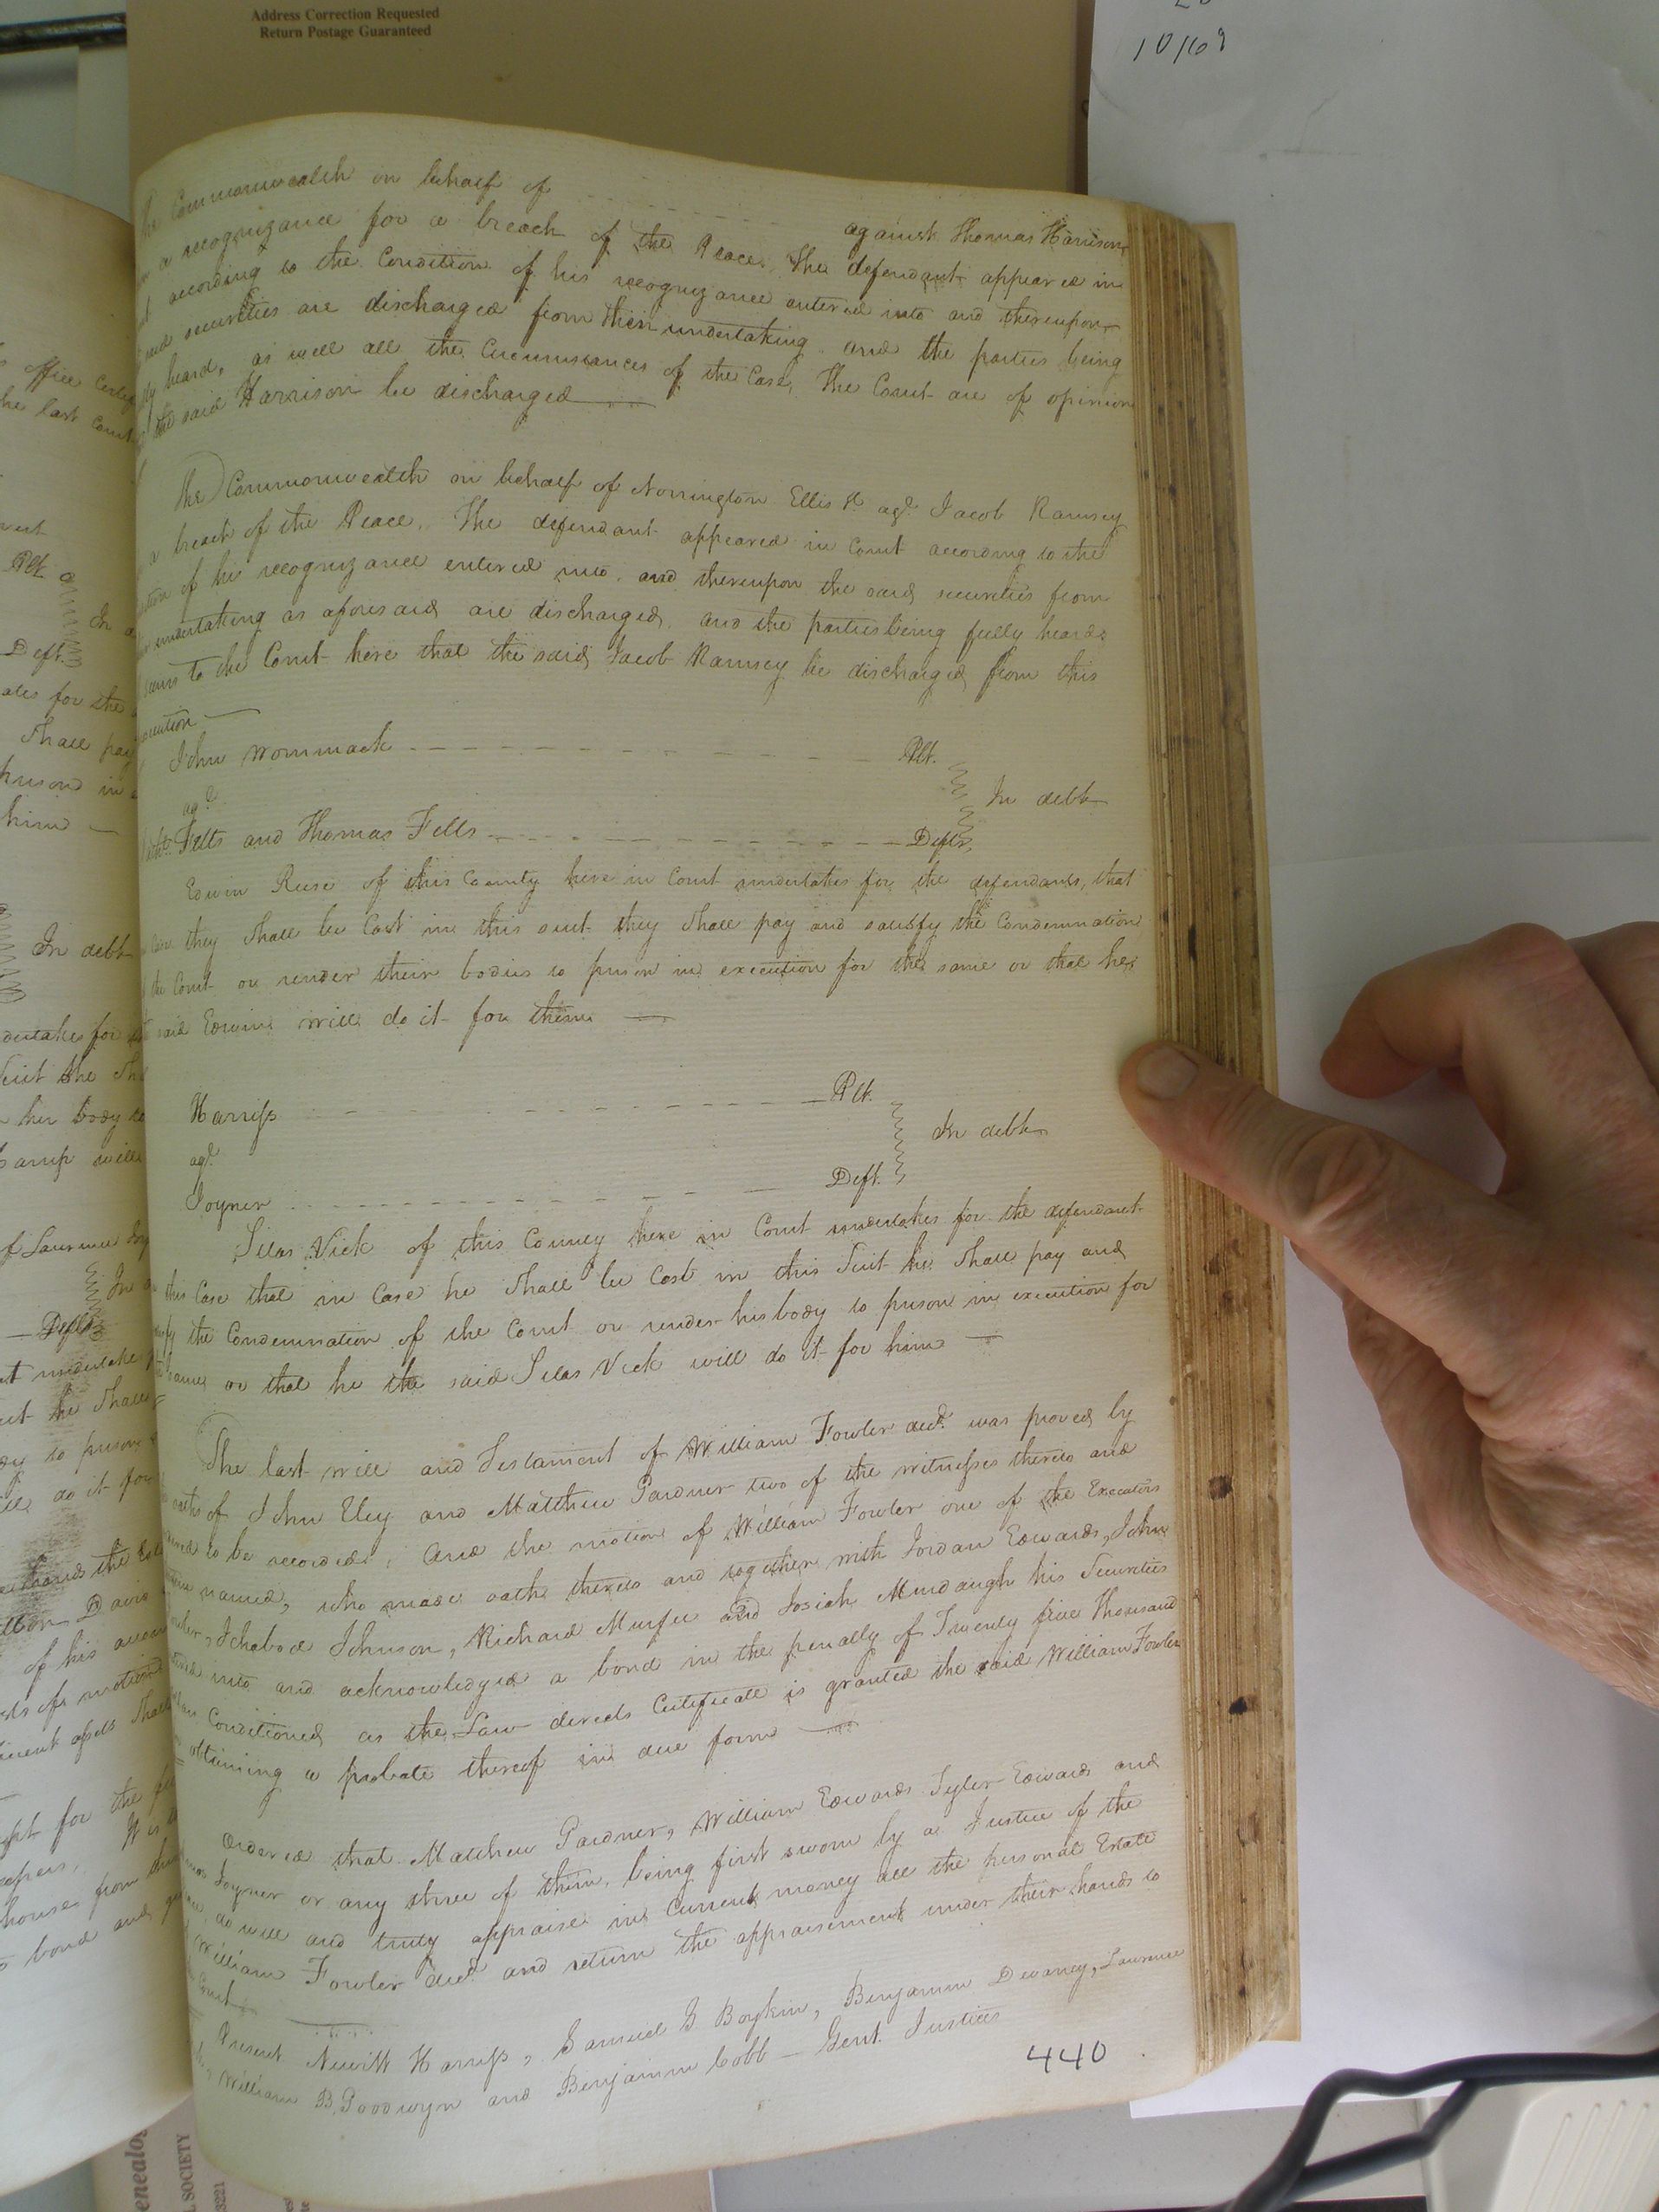 Address Correction Requested
Return Postage Guaranteed
10/69
Commonwealth on behalf of against Thomas Harrison
a recognizance for a breach of the Peace. The defendant appeared in
according to the Condition of his recognizance entered into and thereupon
securities are discharged from their undertaking and the parties being
heard, as well all the Circumstances of the Case, The Court are of opinion
the said Harrison be discharged
The Commonwealth on behalf of Norrington Ellis agt. Jacob Ramsey
a breach of the Peace. The defendant appeared in Court according to the
of his recognizance entered into, and thereupon the said securities from
undertaking as aforesaid are discharged, and the parties being fully heard
to the Court here that the said Jacob Ramsey be discharged from this
John Wommack Plt.
agt. In debt
Felts and Thomas Felts Defts.
Edwin Rese of this County here in Court undertakes for the defendants, that
they shall be Cast in this suit they shall pay and satisfy the Condemnation
the Court or render their bodies to prison in execution for the same or that he
said Edwin will do it for them
Harriss Plt.
agt. In debt
Joyner Deft.
Silas Vick of this County here in Court undertakes for the defendant
this Case that in Case he shall be Cast in this Suit he shall pay and
the Condemnation of the Court or render his body to prison in execution for
same or that he the said Silas Vick will do it for him
The last will and Testament of William Fowler decd. was proved by
oaths of John Uley and Matthew Gardner two of the witnesses thereto and
to be recorded; And the motion of William Fowler one of the Executors
named, who made oath thereto and together with Jordan Edwards, John
Ichabod Johnson, Richard Murfee and Josiah Murdaugh his Securities
into and acknowledged a bond in the penalty of Twenty five Thousand
Conditioned as the Law directs Certificate is granted the said William Fowler
obtaining a probate thereof in due form
Ordered that Matthew Gardner, William Edwards Tyler Edwards and
Joyner or any three of them, being first sworn by a Justice of the
do well and truly appraise in Current money all the personal Estate
William Fowler decd. and return the appraisement under their hands to
Court
Present Newitt Harriss, Samuel B Boykin, Benjamin Devaney, Lawrence
William B. Goodwyn and Benjamin Cobb Gent. Justices
440
office
the last Court
Plt
Deft.
for the
shall pay
prison in
him
In debt
her body to
will
of Lawrence
Defts
undertake
he shall
to prison
do it for
hands the
Davis
of his
of motion
for the
house from
bond and
SOCIETY
3221